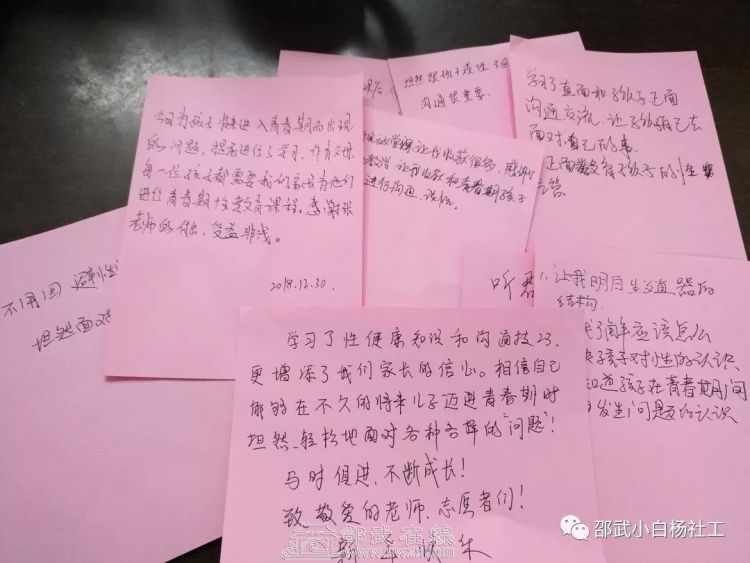 今日为孩子将来进入青春期而出现
的问题，提前进行了学习，作为父母，
每一位孩子都需要我们家长为他们
进行青春期性教育课程。感谢张
老师的付出，受益非浅。
2018.12.30.
坦然跟孩子谈性
沟通很重要.
学习了直面和孩子正面
沟通交流，让孩子自己去
面对自己的事.
正面教育孩子的
堂课让我收获很多，感谢
教学，让我收获和青春期孩子
进行沟通、谈心。
不再回避性
坦然面对
听
1. 让我明白生殖器的
结构.
了解应该怎么
孩子对性的认识
知道孩子在青春期间
发生问题的认识
学习了性健康知识和沟通技巧、
更增添了我们家长的信心。相信自己
能够在不久的将来儿子迈进青春期时
坦然、轻松地面对各种各样的“问题”！
与时俱进、不断成长！
致敬爱的老师、志愿者们！
邵武在线
www.swzx.com
邵武小白杨社工